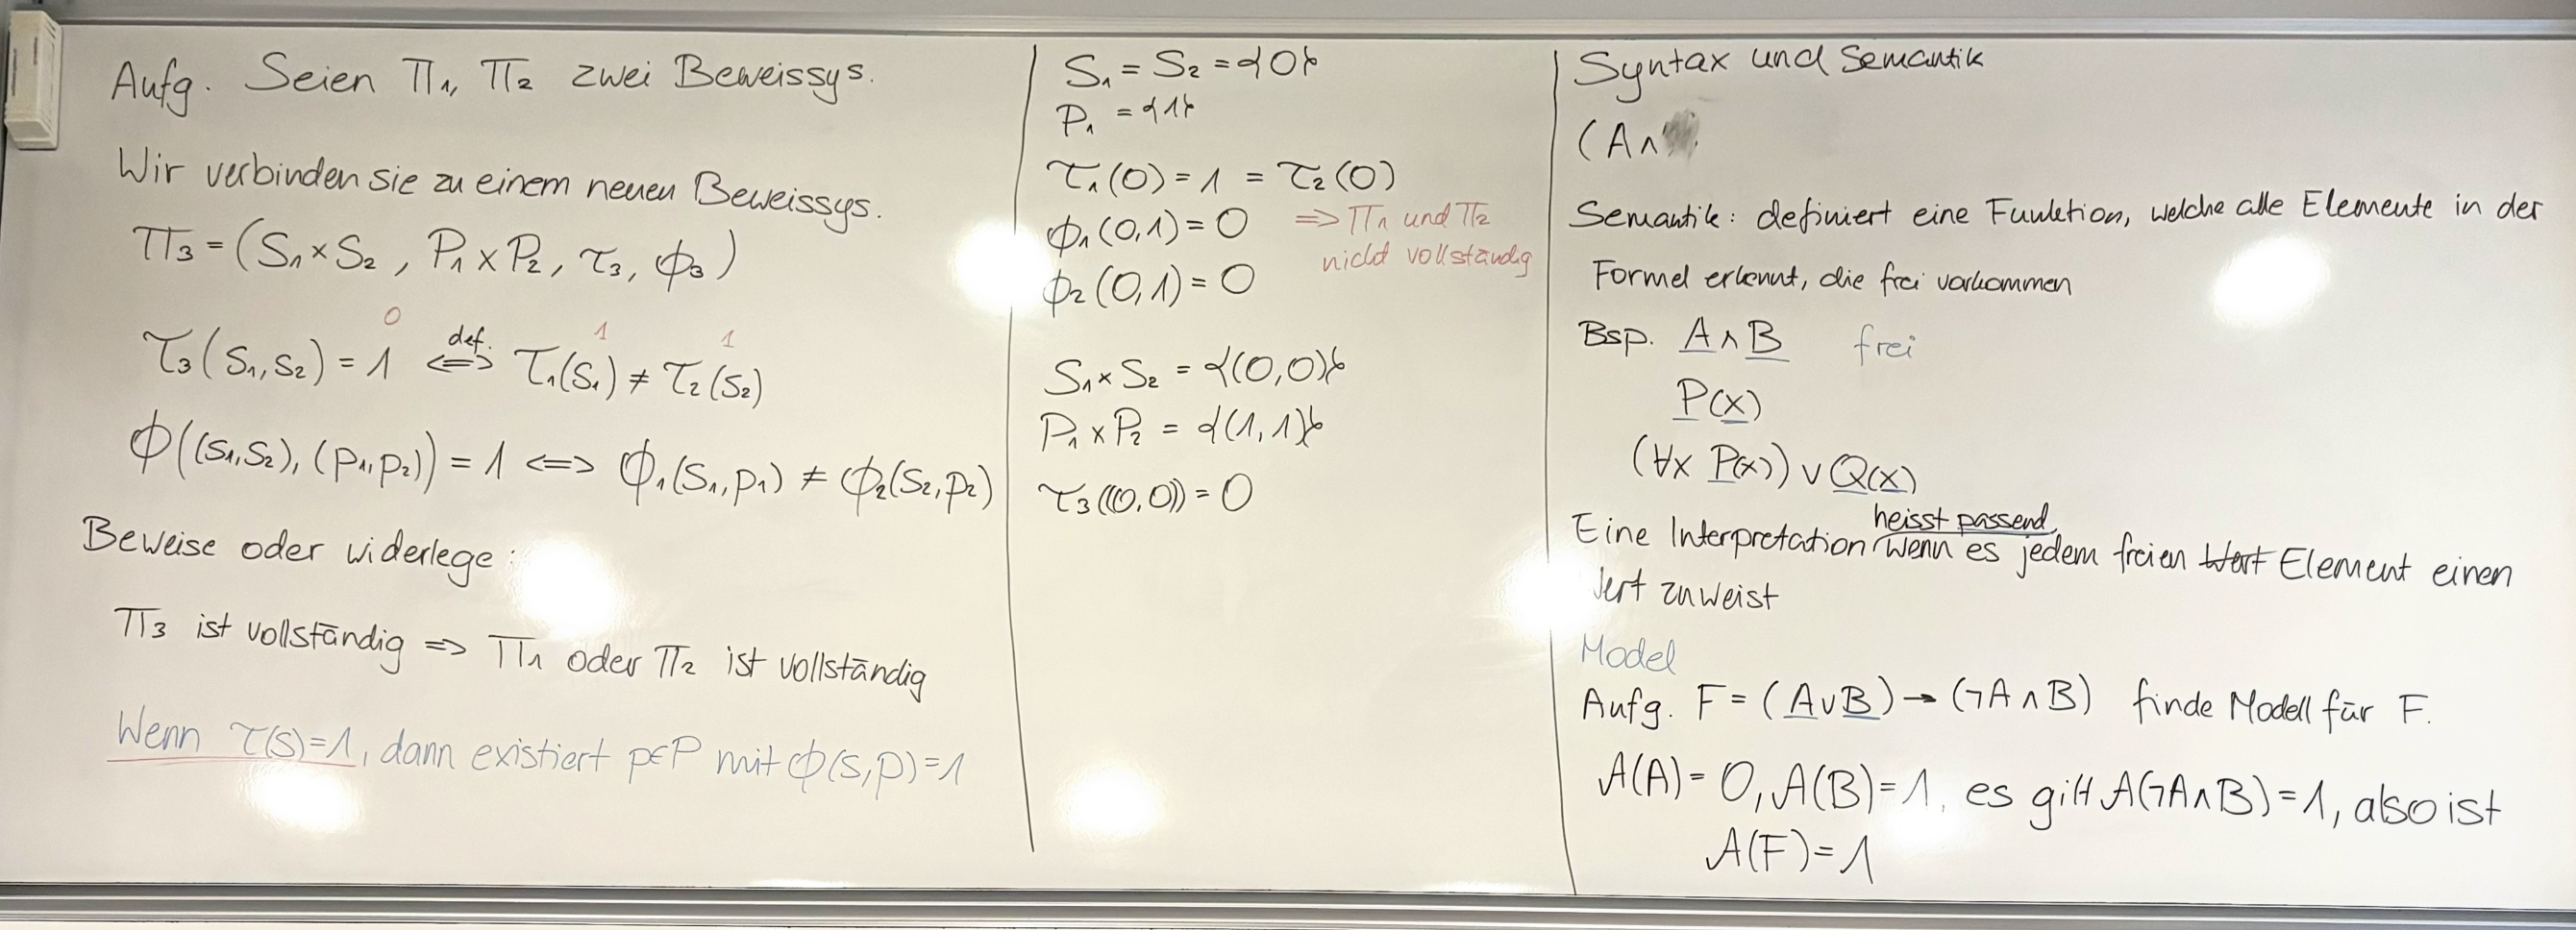 Aufg. Seien Π₁, Π₂ zwei Beweissys.
Wir verbinden sie zu einem neuen Beweissys.
Π₃ = (S₁×S₂, P₁×P₂, τ₃, ϕ₃)
0 1 1
τ₃(s₁,s₂) = 1 ⟺ def. τ₁(s₁) ≠ τ₂(s₂)
ϕ((s₁,s₂), (p₁,p₂)) = 1 ⟺ ϕ₁(s₁,p₁) ≠ ϕ₂(s₂,p₂)
Beweise oder widerlege:
Π₃ ist vollständig ⇒ Π₁ oder Π₂ ist vollständig
Wenn τ(s)=1, dann existiert p∈P mit ϕ(s,p)=1
S₁ = S₂ = {0}
P₁ = {1}
τ₁(0) = 1 = τ₂(0)
ϕ₁(0,1) = 0 ⇒ Π₁ und Π₂
nicht vollständig
ϕ₂(0,1) = 0
S₁×S₂ = {(0,0)}
P₁×P₂ = {(1,1)}
τ₃((0,0)) = 0
Syntax und Semantik
(A∧
Semantik: definiert eine Funktion, welche alle Elemente in der
Formel erkennt, die frei vorkommen
Bsp. A∧B frei
P(x)
(∀x P(x)) ∨ Q(x)
heisst passend
Eine Interpretation wenn es jedem freien Wert Element einen
Wert zuweist
Model
Aufg. F = (A∨B) → (¬A∧B) finde Modell für F.
A(A) = 0, A(B) = 1, es gilt A(¬A∧B) = 1, also ist
A(F) = 1